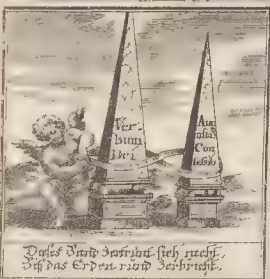 Ver
bum
Dei
Au
gustal
Con
fessio
Dieses Band zertrint sich nicht,
Biß das Erden rund zerbricht.